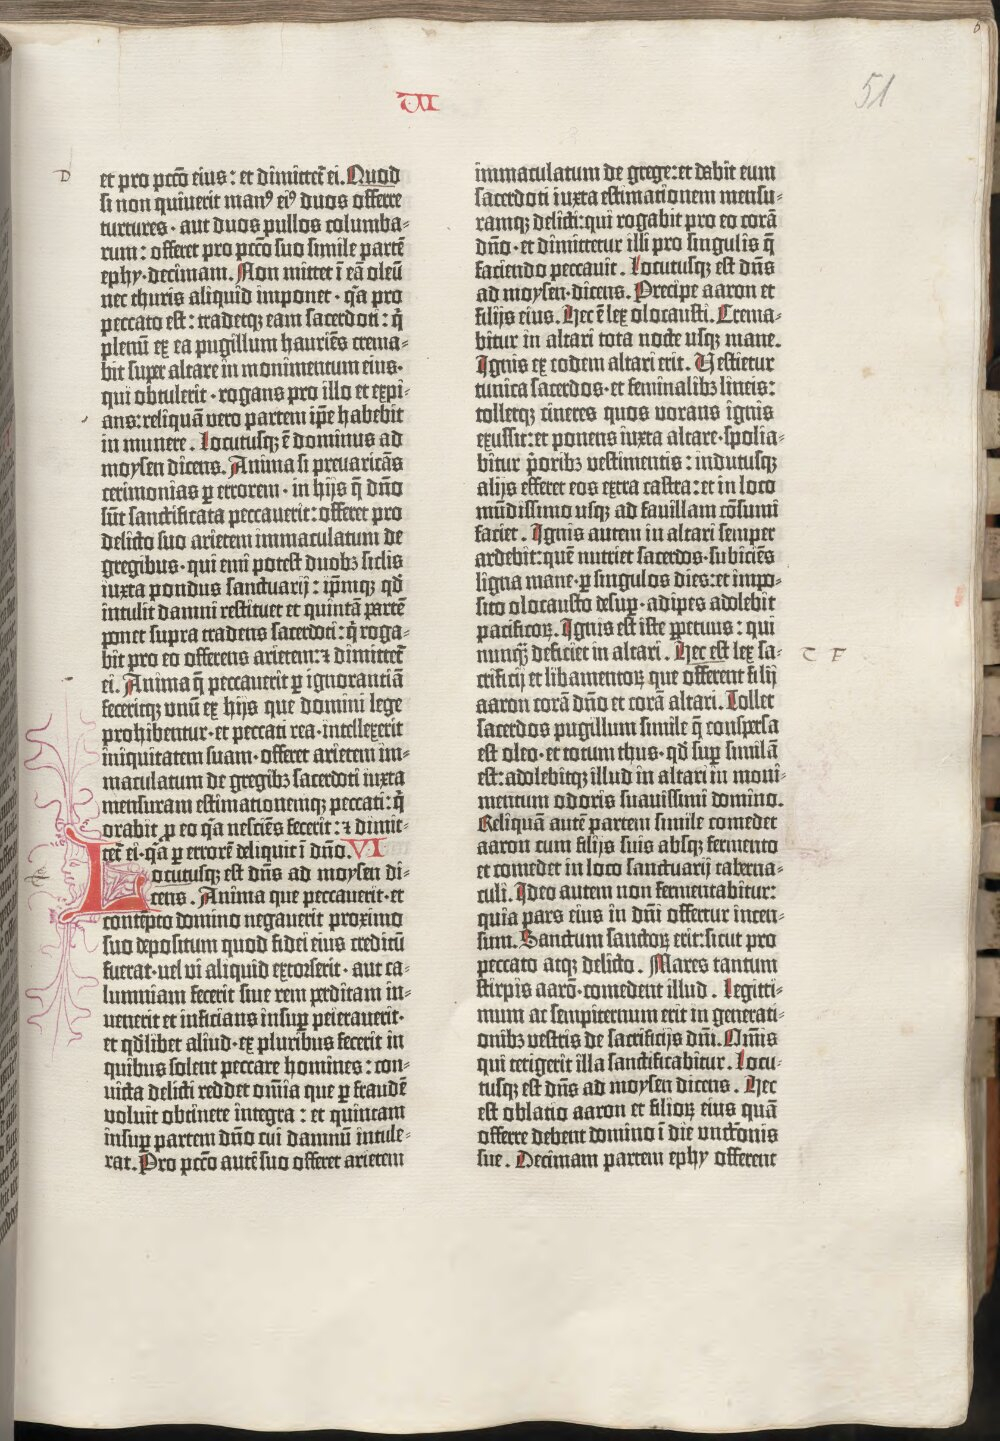 VI
51
D
et pro pctō eius: et dimittet̄ ei. Quod
si non quiuerit manꝰ eiꝰ duos offerre
turtures · aut duos pullos columba-
rum: offeret pro pctō suo simile partē
ephy · decimam. Non mittet ī eā oleū
nec thuris aliquid imponet · qa pro
peccato est: tradetqꝫ eam sacerdoti: q̄
plenū ex ea pugillum hauriēs crema-
bit super altare in monimentum eius ·
qui obtulerit · rogans pro illo et expi-
ans: reliquā vero partem ip̄e habebit
in munere. Locutusqꝫ ē dominus ad
moysen dicens. Anima si preuaricās
cerimonias ꝑ errorem · in hijs q̄ dn̄o
sūt sanctificata peccauerit: offeret pro
delicto suo arietem immaculatum de
gregibus · qui emi potest duobꝫ siclis
iuxta pondus sanctuarij: ip̄mqꝫ qd̄
intulit damni restituet et quintā partē
ponet supra tradens sacerdoti: q̄ roga-
bit pro eo offerens arietem: ⁊ dimittet̄
ei. Anima q̄ peccauerit ꝑ ignorantiā
feceritqꝫ vnū ex hijs que domini lege
prohibentur · et peccati rea · intellexerit
iniquitatem suam · offeret arietem im-
maculatum de gregibꝫ sacerdoti iuxta
mensuram estimationemqꝫ peccati: q̄
orabit ꝓ eo qa nesciēs fecerit: ⁊ dimit-
tet̄ ei · qa ꝑ errorē deliquit ī dn̄o. VI
Locutusqꝫ est dn̄s ad moysen di-
cens. Anima que peccauerit · et
contēpto domino negauerit proximo
suo depositum quod fidei eius creditū
fuerat · uel vi aliquid extorserit · aut ca-
lumniam fecerit siue rem perditam in-
uenerit et inficians insuꝑ peierauerit ·
et qd̄libet aliud · ex pluribus fecerit in
quibus solent peccare homines: con-
uicta delicti reddet om̄ia que ꝑ fraudē
voluit obtinere integra: et quintam
insuꝑ partem dn̄o cui damnū intule-
rat. Pro pctō autē suo offeret arietem
immaculatum de grege: et dabit eum
sacerdoti iuxta estimationem mensu-
ramqꝫ delicti: qui rogabit pro eo corā
dn̄o · et dimittetur illi pro singulis q̄
faciendo peccauit. Locutusqꝫ est dn̄s
ad moysen · dicens. Precipe aaron et
filijs eius. Hec ē lex olocausti. Crema-
bitur in altari tota nocte usqꝫ mane.
Ignis ex eodem altari erit. Vestietur
tunica sacerdos · et feminalibꝫ lineis:
tolletqꝫ cineres quos vorans ignis
exussit: et ponens iuxta altare · spolia-
bitur p̄oribꝫ vestimentis: indutusqꝫ
alijs efferet eos extra castra: et in loco
mūdissimo usqꝫ ad fauillam cōsumi
faciet. Ignis autem in altari semper
ardebit: quē nutriet sacerdos · subiciēs
ligna mane · ꝑ singulos dies: et impo-
sito olocausto desuꝑ · adipes adolebit
pacificoꝝ. Ignis est iste ꝑpetuus: qui
nunqꝫ̄ deficiet in altari. Hec est lex sa-
C F
crificij et libamentoꝝ que offerent filij
aaron corā dn̄o et corā altari. Tollet
sacerdos pugillum simile q̄ conspersa
est oleo · et totum thus · qd̄ suꝑ similā
est: adolebitqꝫ illud in altari in moni-
mentum odoris suauissimi domino.
Reliquā autē partem simile comedet
aaron cum filijs suis absqꝫ fermento
et comedet in loco sanctuarij taberna-
culi. Ideo autem non fermentabitur:
quia pars eius in dn̄i offertur incen-
sum. Sanctum sanctoꝝ erit: sicut pro
peccato atqꝫ delicto. Mares tantum
stirpis aarō · comedent illud. Legitti-
mum ac sempiternum erit in generati-
onibꝫ vestris de sacrificijs dn̄i. Om̄is
qui tetigerit illa sanctificabitur. Locu-
tusqꝫ est dn̄s ad moysen dicens. Hec
est oblatio aaron et filioꝝ eius quā
offerre debent domino ī die vnctōnis
sue. Decimam partem ephy offerent